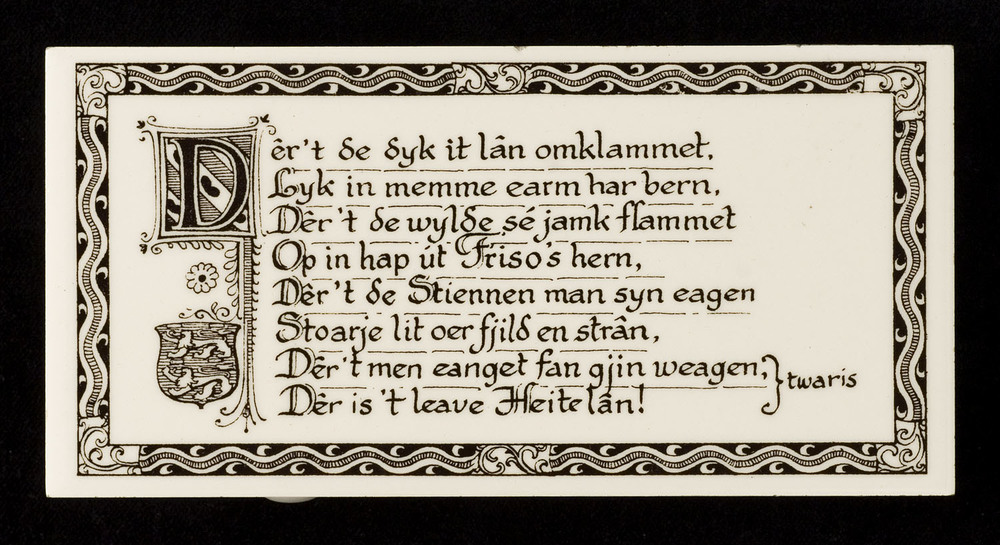 Dêr't de dyk it lân omklammet,
Lyk in memme earm har bern,
Dêr't de wylde sé jamk flammet
Op in hap út Friso's hern,
Dêr't de Stiennen man syn eagen
Stoarje lit oer fjild en strân,
Dêr't men eanget fan gjin weagen; } twaris
Dêr is 't leave Heitelân!